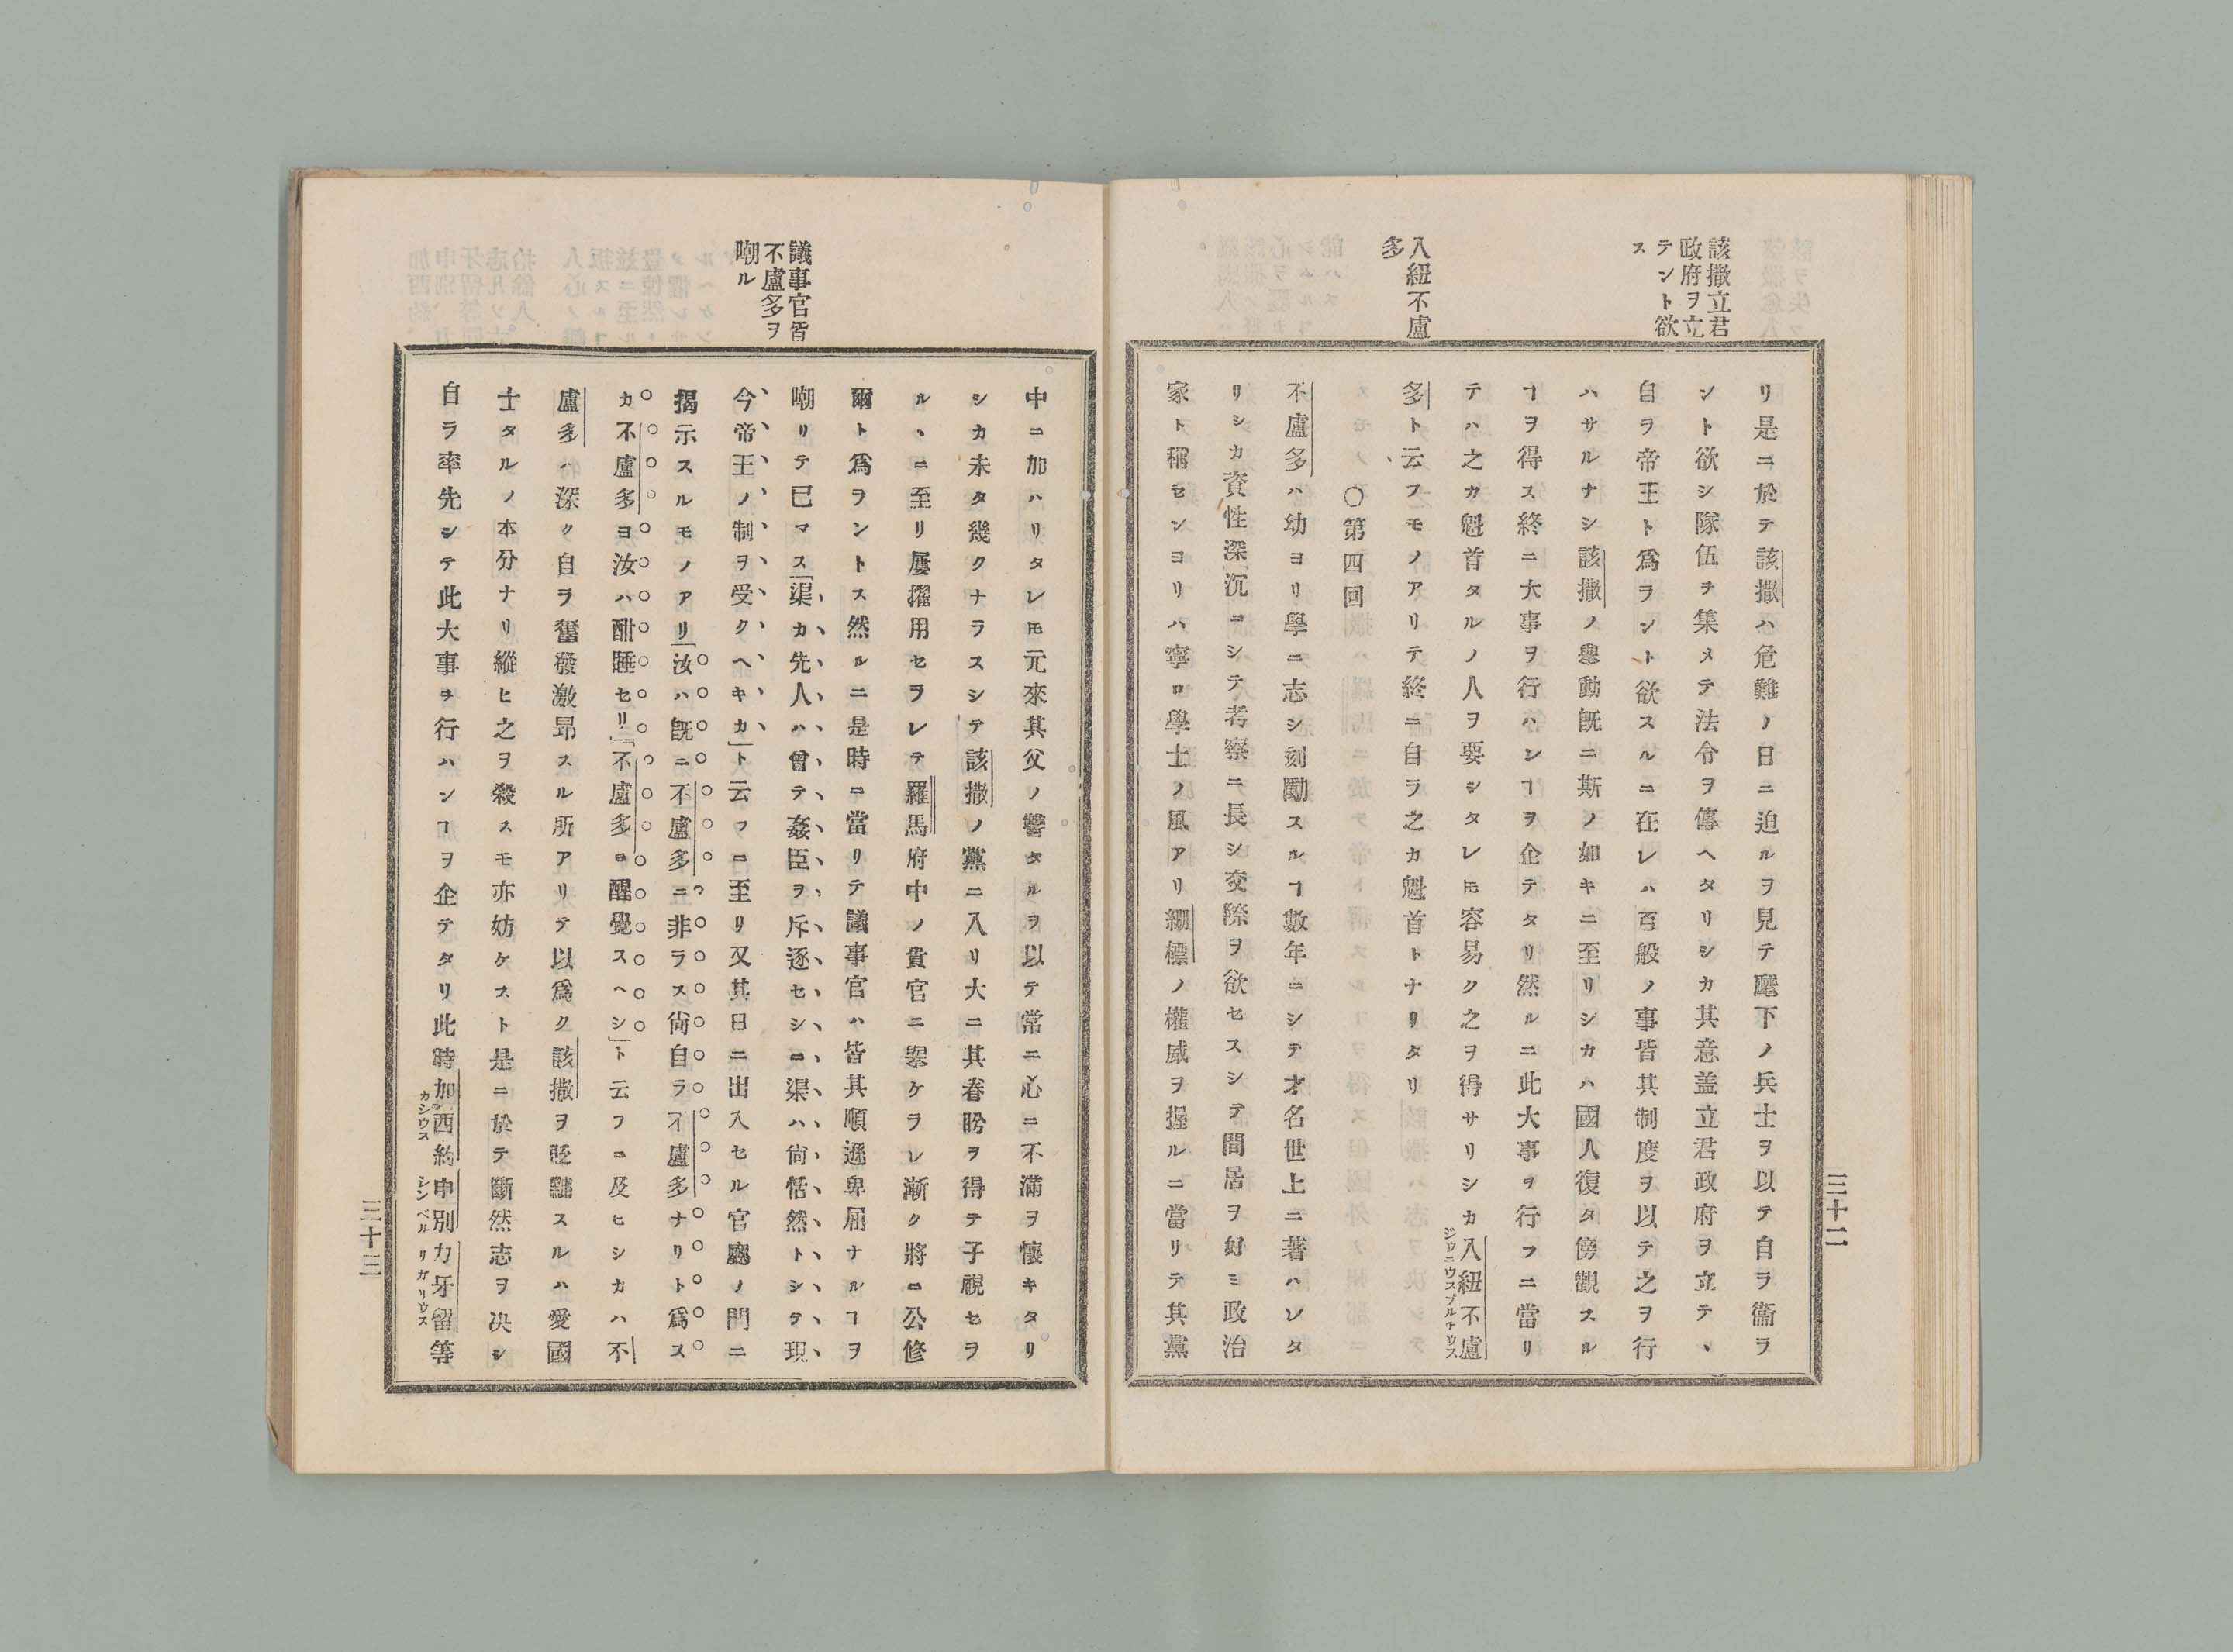 該撒立君
政府ヲ立
テント欲
ス
入紐不盧
多
リ是ニ於テ該撒ハ危難ノ日ニ迫ルヲ見テ麾下ノ兵士ヲ以テ自ラ衞ラ
ント欲シ隊伍ヲ集メテ法令ヲ傳ヘタリシカ其意盖立君政府ヲ立テヽ
自ヲ帝王ト爲ラント欲スルニ在レハ百般ノ事皆其制度ヲ以テ之ヲ行
ハサルナシ該撒ノ擧動既ニ斯ノ如キニ至リシカハ國人復タ傍觀スル
ヿヲ得ス終ニ大事ヲ行ハンヿヲ企テタリ然ルニ此大事ヲ行フニ當リ
テハ之カ魁首タルノ人ヲ要シタレ𪜈容易ク之ヲ得サリシカ入紐不盧
ジウニウスブルチウス
多ト云フモノアリテ終ニ自ラ之カ魁首トナリタリ
〇第四回
不盧多ハ幼ヨリ學ニ志シ刻勵スルヿ數年ニシテ才名世上ニ著ハレタ
リシカ資性深沉ニシテ考察ニ長シ交際ヲ欲セスシテ間居ヲ好ミ政治
家ト稱センヨリハ寧ロ學士ノ風アリ繃標ノ權威ヲ握ルニ當リテ其黨
三十二
議事官皆
不盧多ヲ
嘲ル
中ニ加ハリタレ𪜈元來其父ノ讐タルヲ以テ常ニ心ニ不滿ヲ懷キタリ
シカ未タ幾クナラスシテ該撒ノ黨ニ入リ大ニ其眷眄ヲ得テ子視セヲ
ルヽニ至リ屢擢用セラレテ羅馬府中ノ貴官ニ擧ケラレ漸ク將ニ公修
爾ト爲ヲントス然ルニ是時ニ當リテ議事官ハ皆其順遜卑屈ナルヿヲ
嘲リテ已マス「渠カ先人ハ曾テ姦臣ヲ斥逐セシニ渠ハ尙恬然トシテ現
今帝王ノ制ヲ受クヘキカ」ト云フニ至リ又其日ニ出入セル官廳ノ門ニ
揭示スルモノアリ「汝ハ既ニ不盧多ニ非ラス尙自ラ不盧多ナリト爲ス
カ不盧多ヨ汝ハ酣睡セリ」「不盧多ヨ醒覺スヘシ」ト云フニ及ヒシカハ不
盧多ハ深ク自ラ奮發激昂スル所アリテ以爲ク該撒ヲ貶黜スルハ愛國
士タルノ本分ナリ縱ヒ之ヲ殺スモ亦妨ケスト是ニ於テ斷然志ヲ决シ
自ラ率先シテ此大事ヲ行ハンヿヲ企テタリ此時加西約申別力牙留等
カシウス シンベル リガリウス
三十三